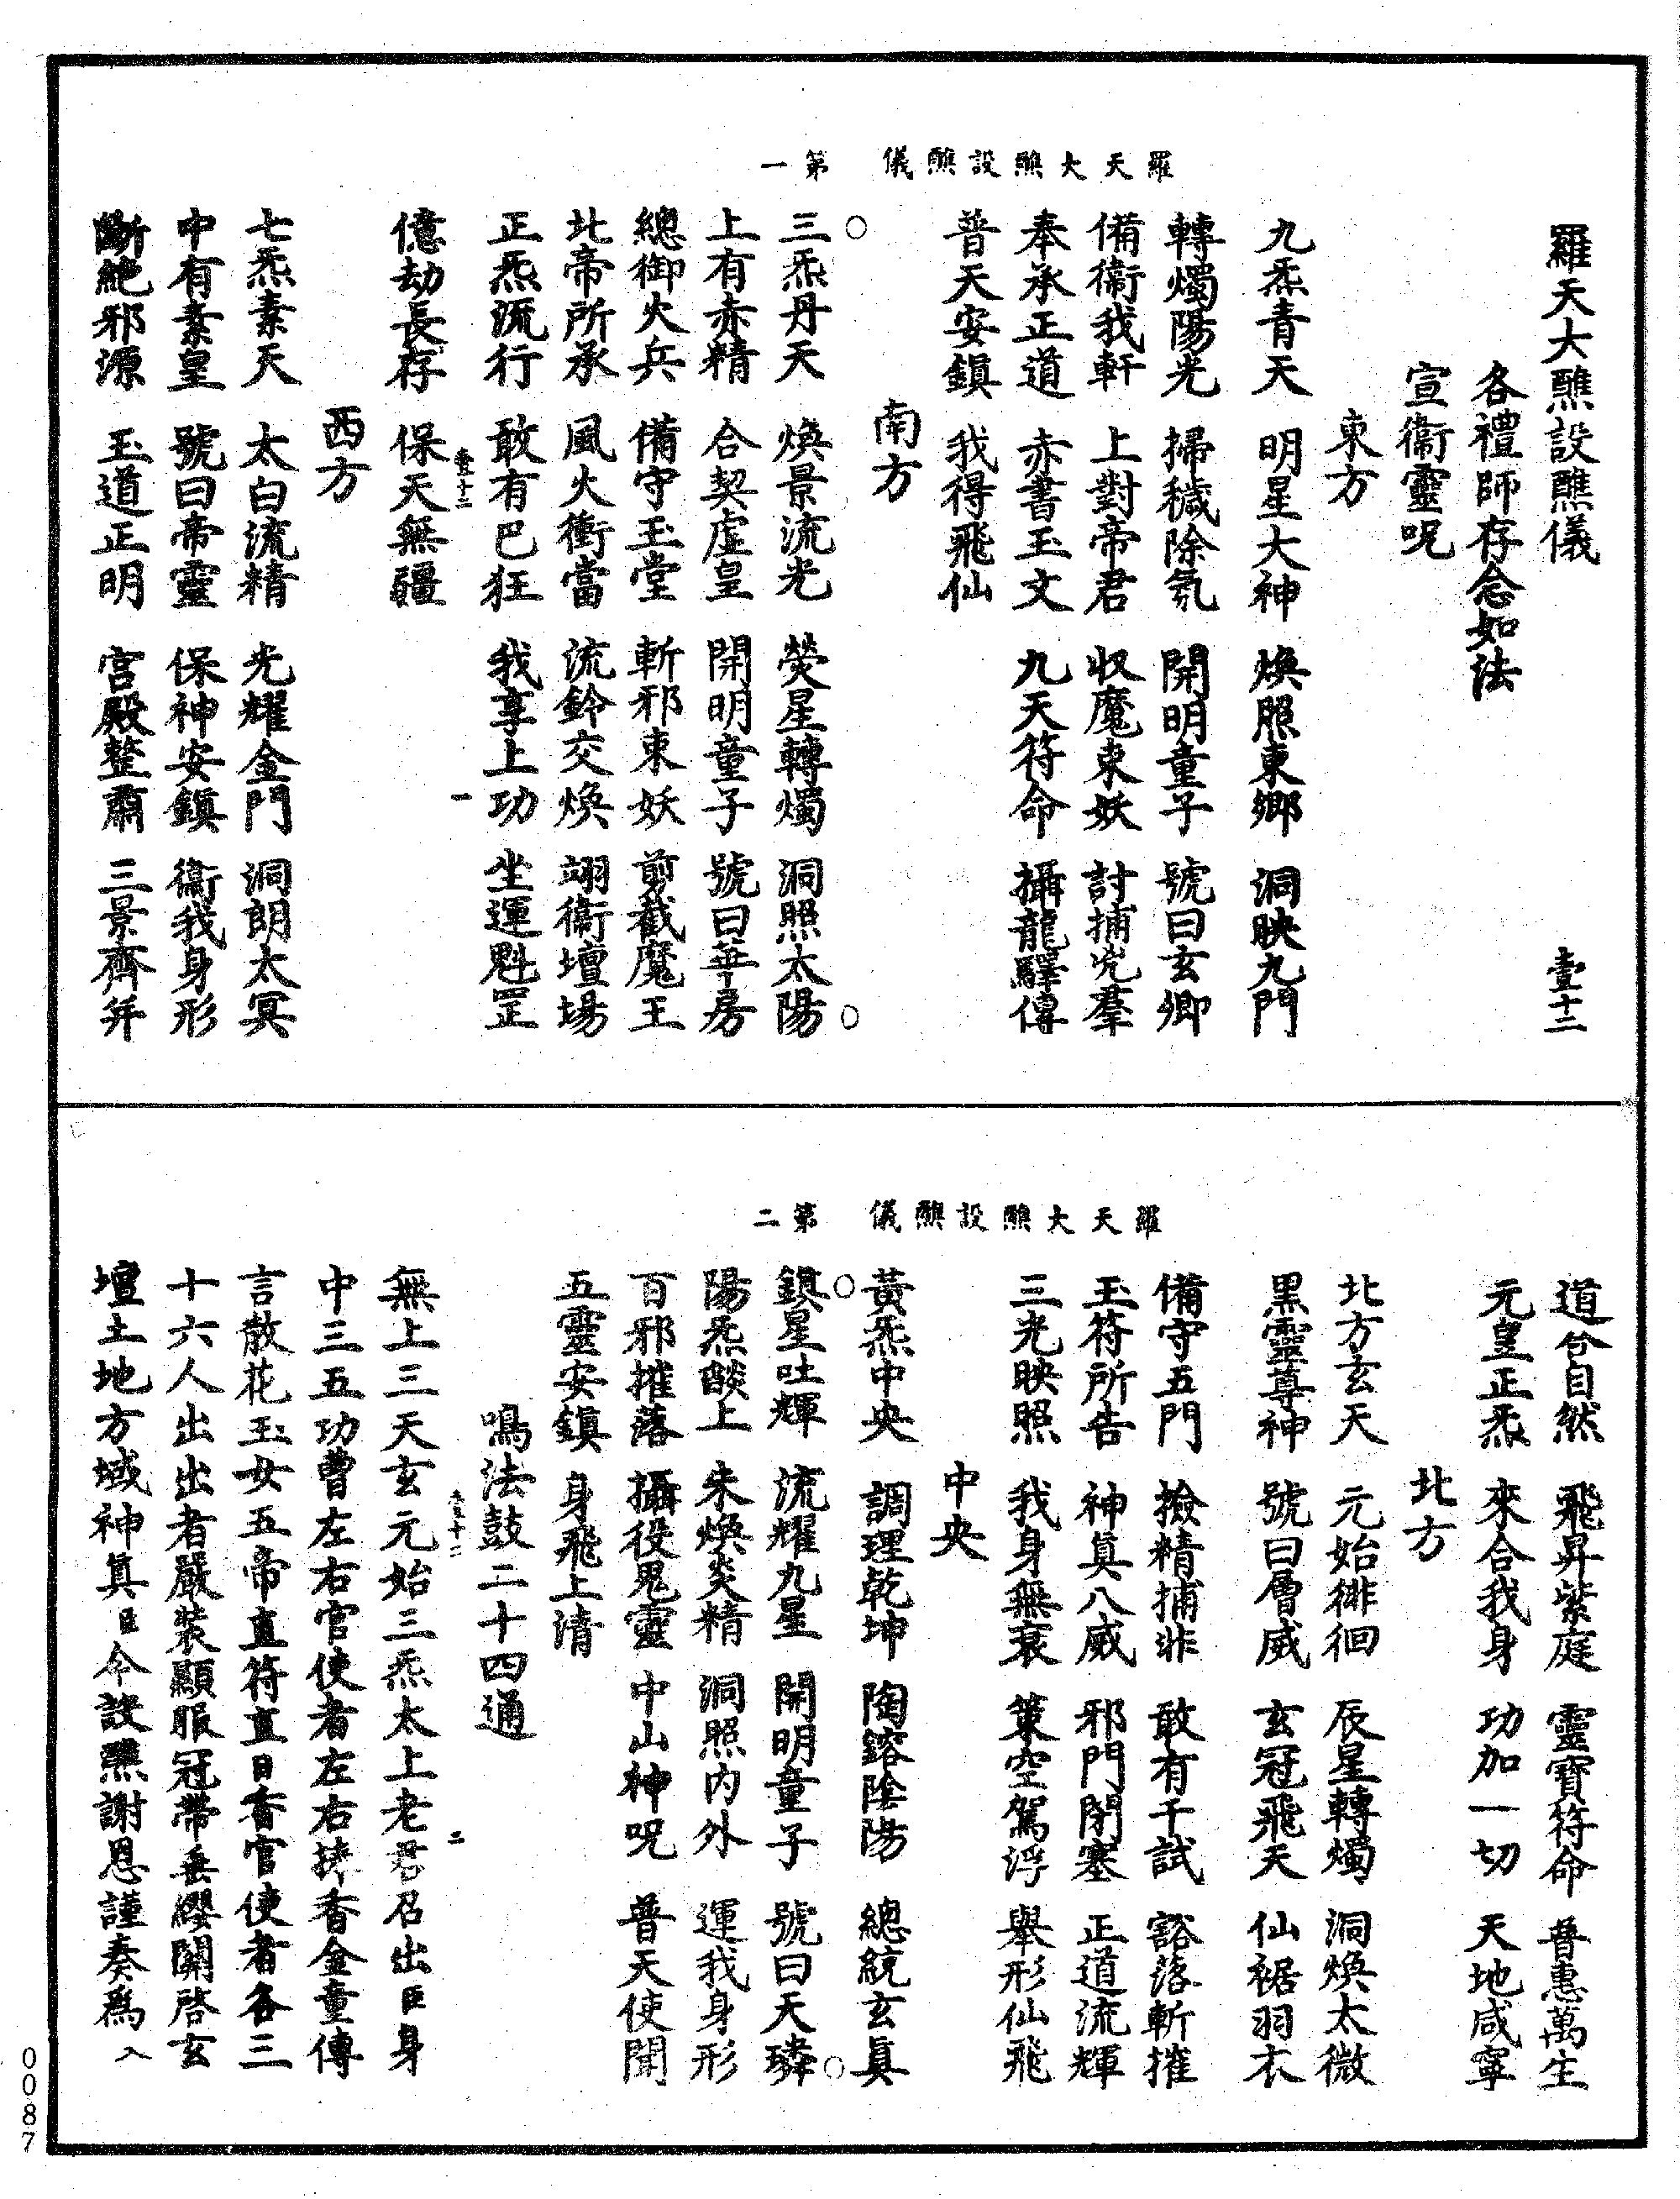 羅天大醮設醮儀　第一
羅天大醮設醮儀　壹十二
各禮師存念如法
宣衞靈呪
東方
九炁青天　明星大神　煥照東鄉　洞映九門
轉燭陽光　掃穢除氛　開明童子　號曰玄卿
備衞我軒　上對帝君　収魔束妖　討捕兇羣
奉承正道　赤書玉文　九天符命　攝龍驛傳
普天安鎮　我得飛仙
南方
三炁丹天　煥景流光　熒星轉燭　洞照太陽
上有赤精　合契虛皇　開明童子　號曰華房
總御火兵　備守玉堂　斬邪束妖　剪截魔王
北帝所承　風火衝當　流鈴交煥　翊衞壇場
正炁流行　敢有巴狂　我享上功　坐運魁罡
壹十二　一
億劫長存　保天無疆
西方
七炁素天　太白流精　光耀金門　洞朗太冥
中有素皇　號曰帝靈　保神安鎮　衞我身形
斷絕邪源　王道正明　宮殿整肅　三景齊幷
羅天大醮設醮儀　第二
道合自然　飛昇紫庭　靈寶符命　普惠萬生
元皇正炁　來合我身　功加一切　天地咸寧
北方
北方玄天　元始徘徊　辰星轉燭　洞煥太微
黑靈尊神　號曰層威　玄冠飛天　仙裾羽衣
備守五門　撿精捕非　敢有干試　豁落斬摧
玉符所告　神眞八威　邪門閉塞　正道流輝
三光映照　我身無衰　策空駕浮　舉形仙飛
中央
黃炁中央　調理乾坤　陶鎔陰陽　總統玄眞
鎮星吐輝　流耀九星　開明童子　號曰天璘
陽炁燄上　朱煥炎精　洞照內外　運我身形
百邪摧落　攝役鬼靈　中山神呪　普天使聞
五靈安鎮　身飛上清
鳴法鼓二十四通
壹十二　二
無上三天玄元始三炁太上老君召出臣身
中三五功曹左右官使者左右捧香金童傳
言散花玉女五帝直符直日香官使者各三
十六人出出者嚴裝顯服冠帶垂纓關啓玄
壇土地方域神眞臣今設醮謝恩謹奏爲入
0087